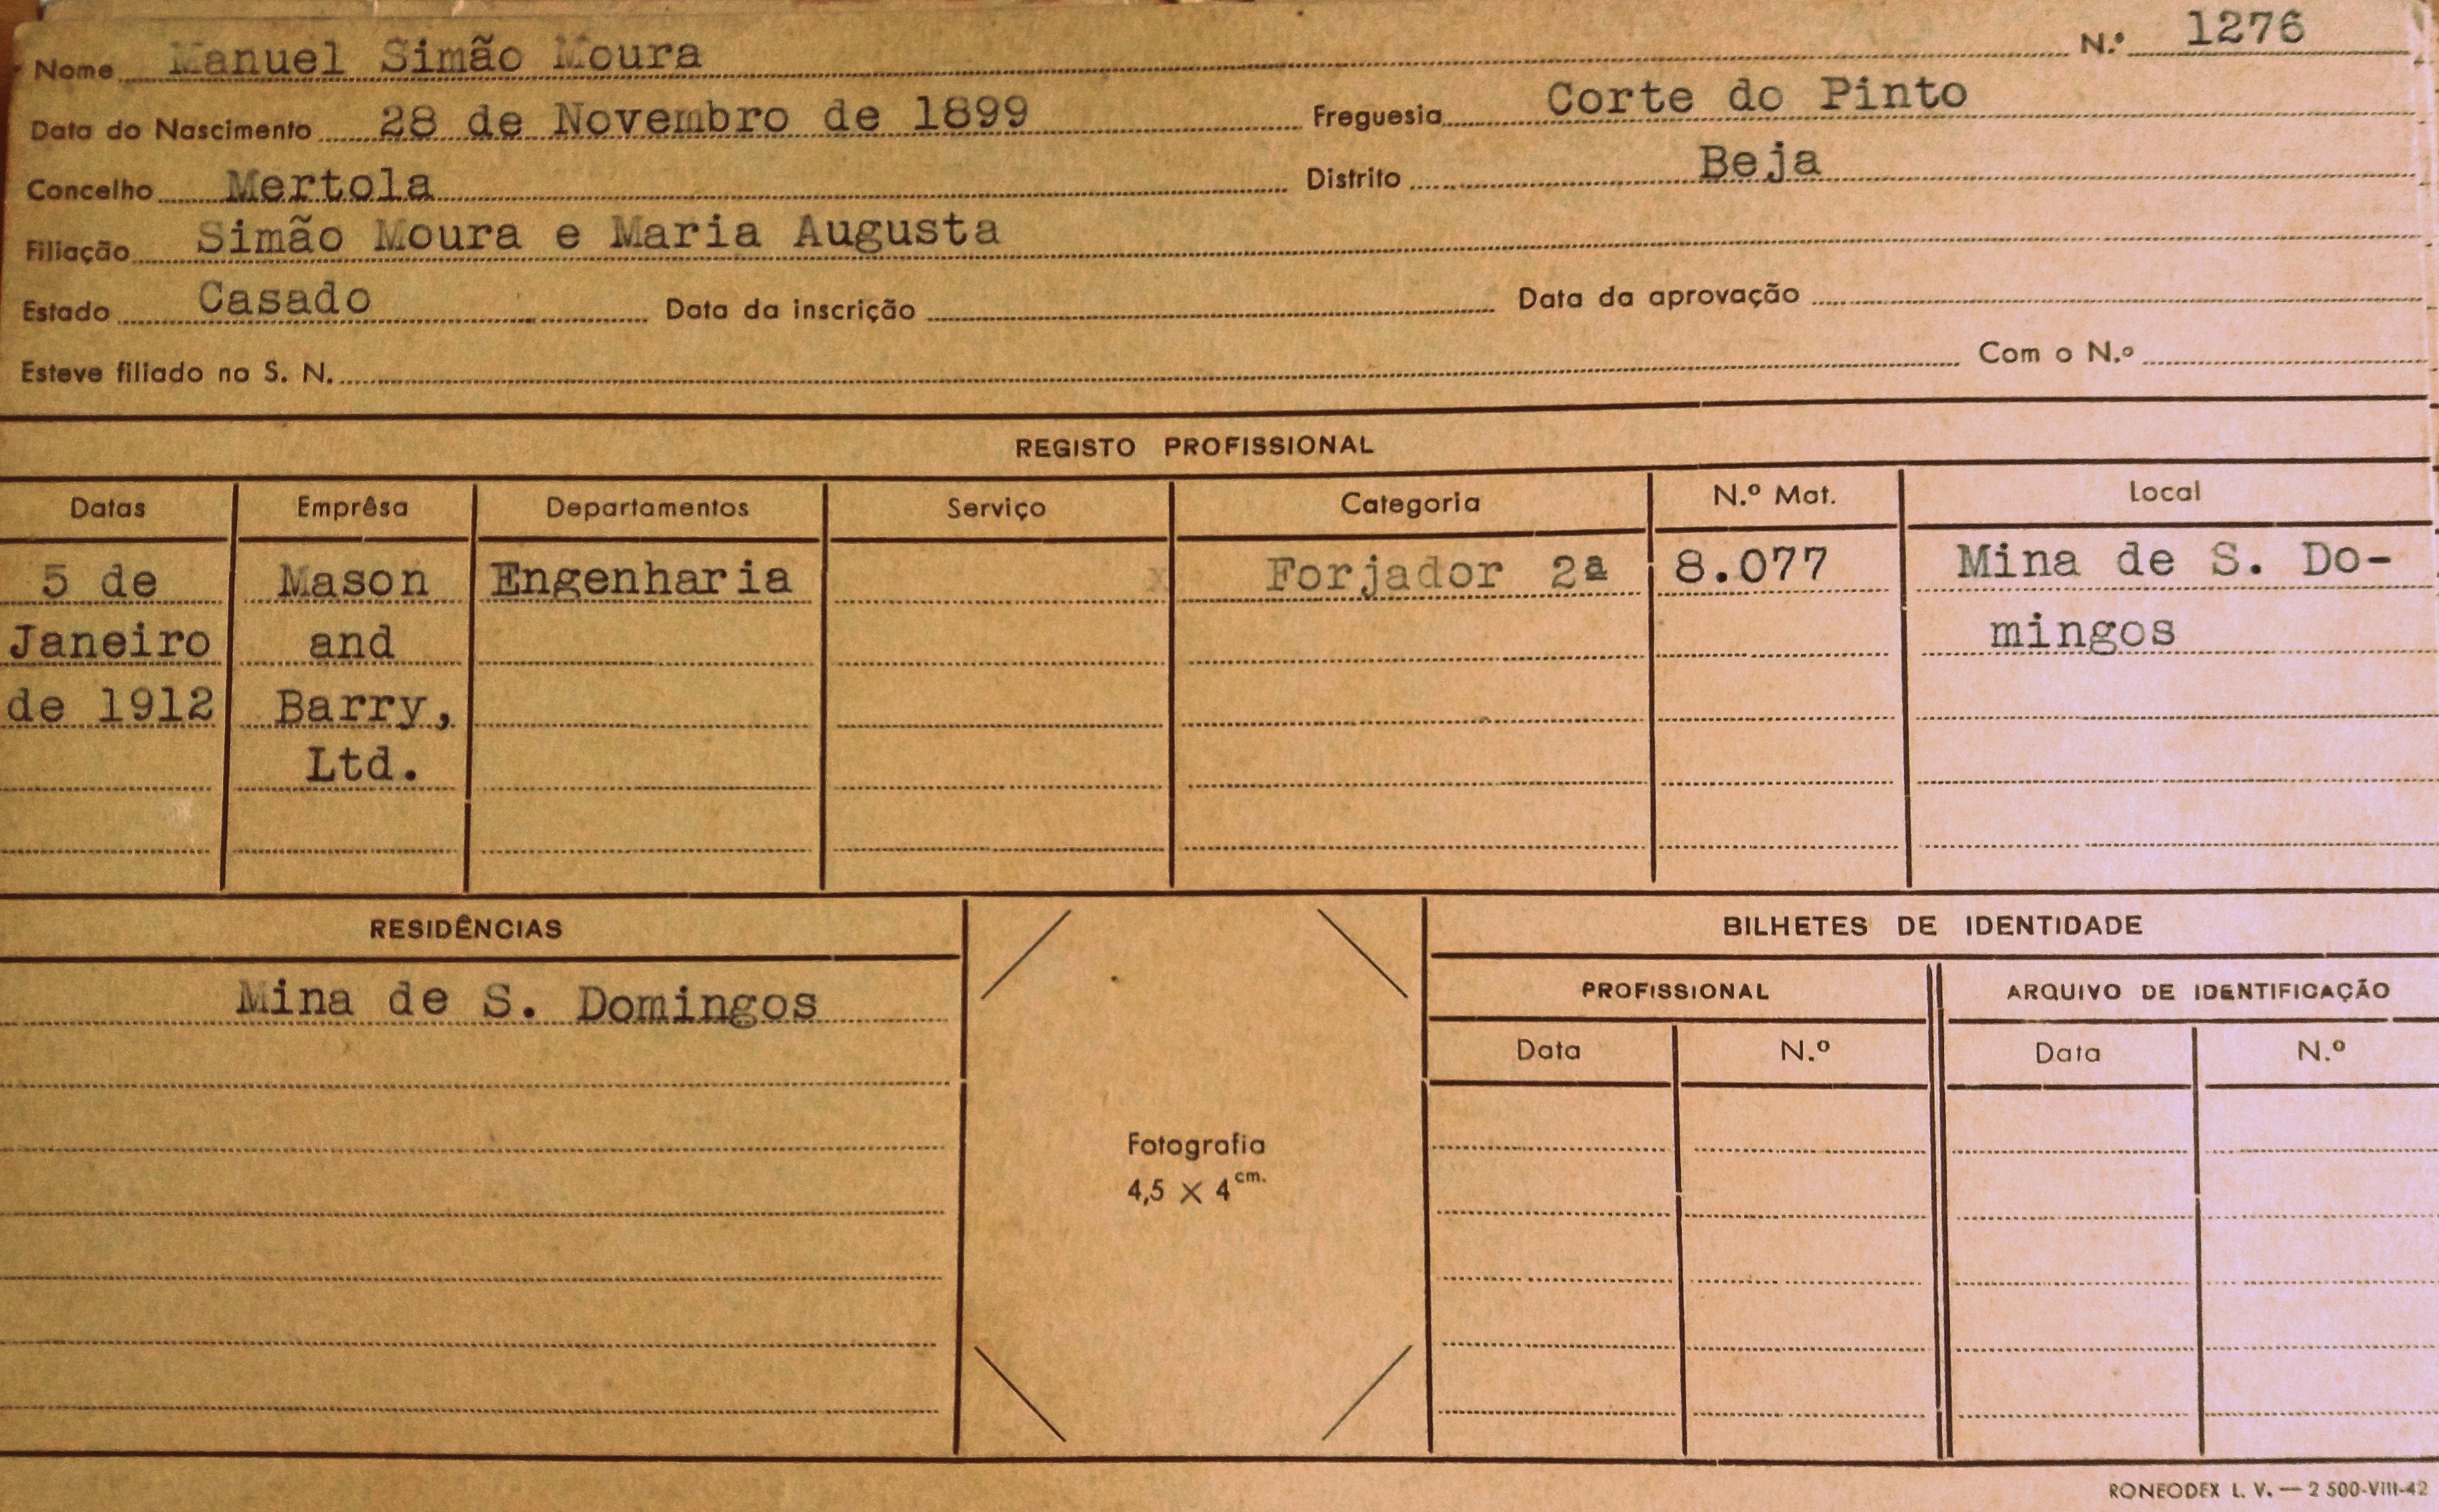 Nome Manuel Simão Moura N.º 1276
Data do Nascimento 28 de Novembro de 1899 Freguesia Corte do Pinto
Concelho Mertola Distrito Beja
Filiação Simão Moura e Maria Augusta
Estado Casado Data da inscrição Data da aprovação
Esteve filiado no S. N. Com o N.º
REGISTO PROFISSIONAL
Datas Emprêsa Departamentos Serviço Categoria N.º Mat. Local
5 de Mason Engenharia x Forjador 2ª 8.077 Mina de S. Do-
Janeiro and mingos
de 1912 Barry,
Ltd.
RESIDÊNCIAS
Mina de S. Domingos
Fotografia
4,5 × 4 cm.
BILHETES DE IDENTIDADE
PROFISSIONAL ARQUIVO DE IDENTIFICAÇÃO
Data N.º Data N.º
RONEODEX L. V. — 2 500-VIII-42